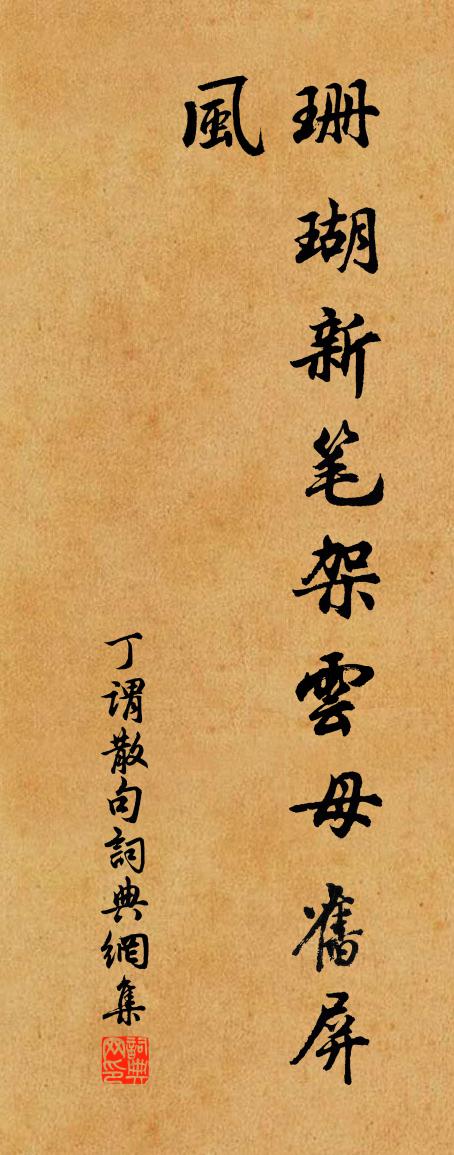 珊瑚新笔架雲母舊屏
風
丁谓散句詞典網集
詞典网印